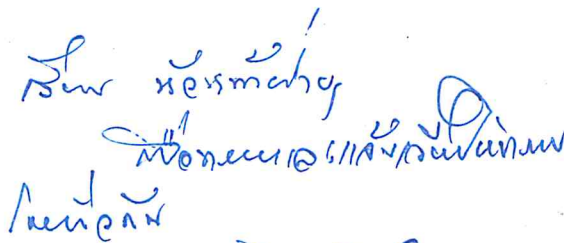 เรียน หัวหน้าฝ่ายฯ
เพื่อทราบและแจ้งเวียนให้ทราบ
โดยทั่วกัน